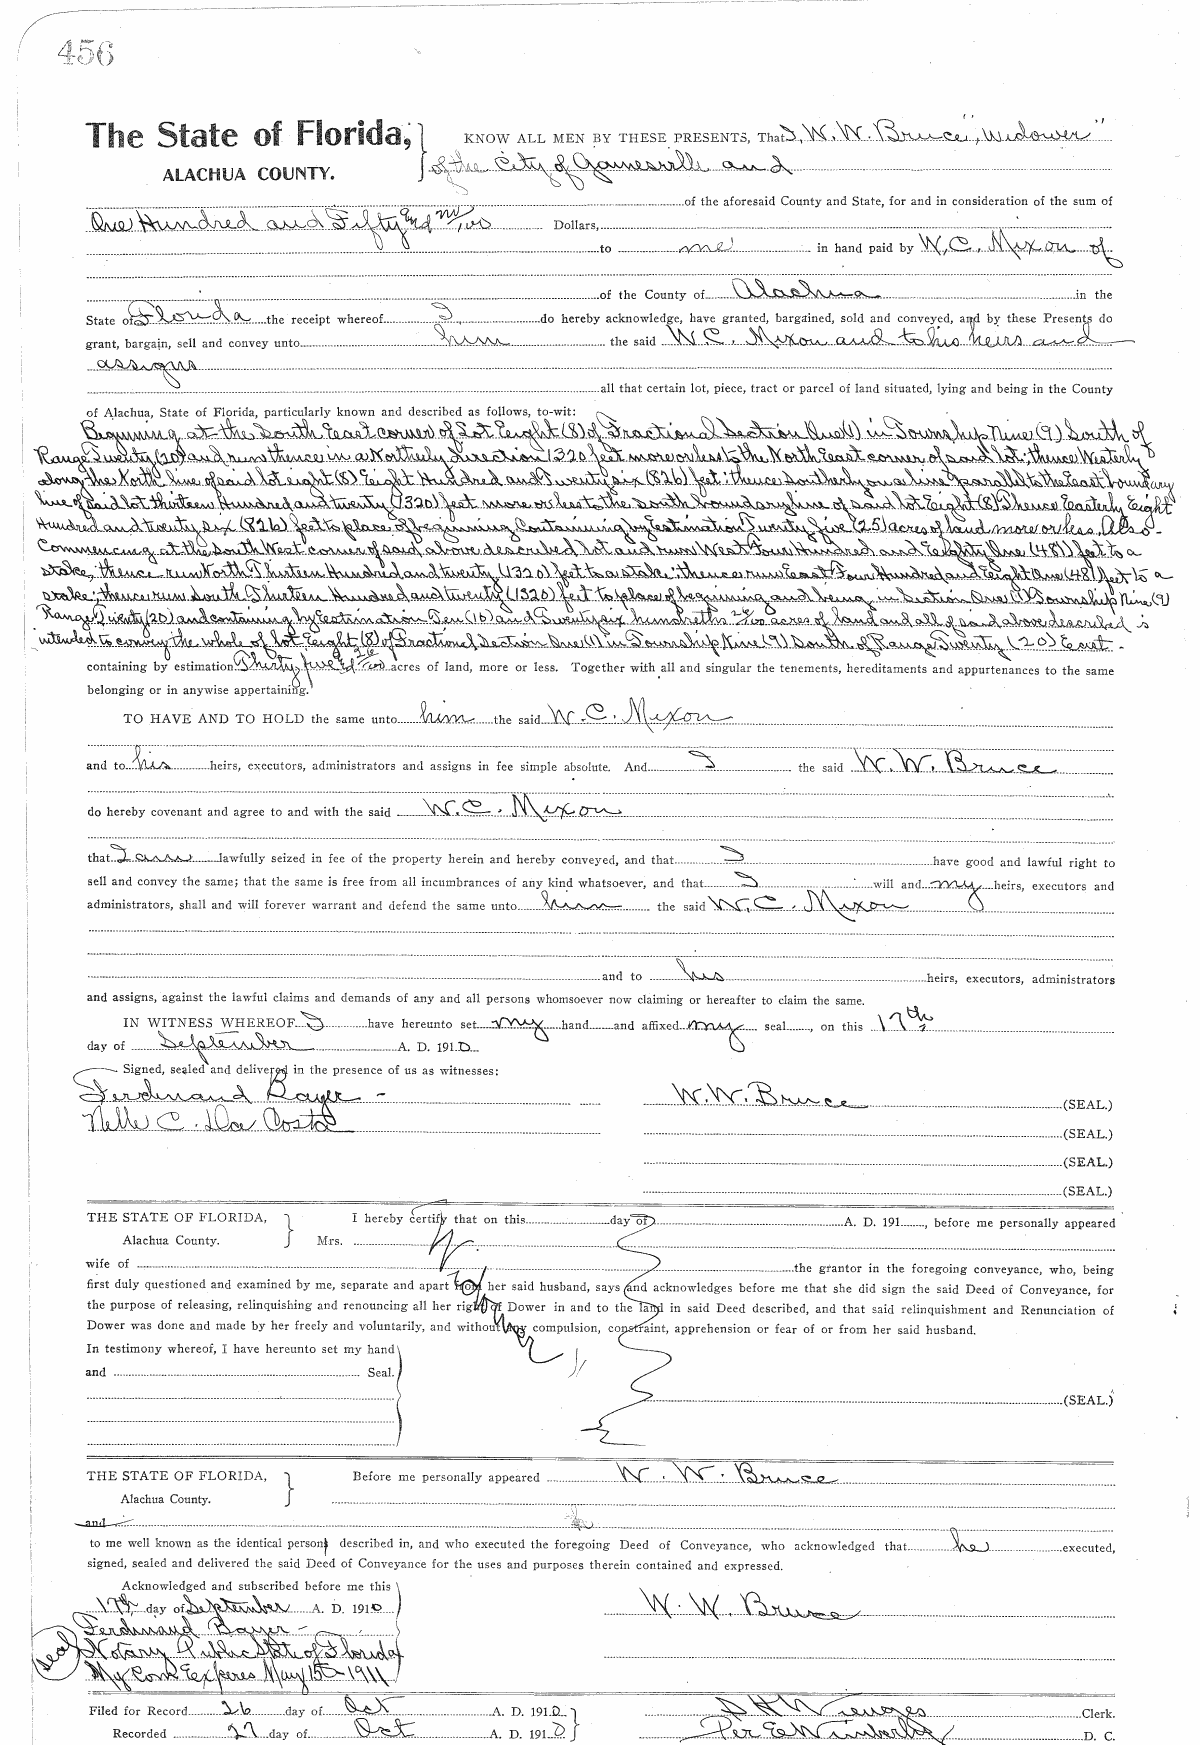 456
The State of Florida, KNOW ALL MEN BY THESE PRESENTS, That I, W. W. Bruce, "Widower"
ALACHUA COUNTY. of the City of Gainesville and
of the aforesaid County and State, for and in consideration of the sum of
One Hundred and Fifty and no/100 Dollars,
to me in hand paid by W. C. Mixon of
of the County of Alachua in the
State of Florida the receipt whereof I do hereby acknowledge, have granted, bargained, sold and conveyed, and by these Presents do
grant, bargain, sell and convey unto him the said W. C. Mixon and to his heirs and
assigns
all that certain lot, piece, tract or parcel of land situated, lying and being in the County
of Alachua, State of Florida, particularly known and described as follows, to-wit:
Beginning at the South East corner of Lot Eight (8) of Fractional Section One (1) in Township Nine (9) South of
Range Twenty (20) and runs thence in a Northerly direction 1320 feet more or less to the North East corner of said lot; thence Westerly
along the North line of said lot eight (8) Eight Hundred and Twenty six (826) feet; thence Southerly on a line parallel to the East boundary
line of said lot thirteen Hundred and twenty (1320) feet more or less to the south boundary line of said lot Eight (8) Thence Easterly Eight
Hundred and twenty six (826) feet to place of beginning Containing by Estimation Twenty five (25) acres of land more or less. Also-
Commencing at the South West corner of said above described lot and run West Four Hundred and Eighty One (481) feet to a
stake; thence run North Thirteen Hundred and twenty (1320) feet to a stake; thence run East Four Hundred and Eight One (481) feet to a
stake; thence run South Thirteen Hundred and twenty (1320) feet to place of beginning and being in Section One (1) Township Nine (9)
Range Twenty (20) and containing by Estimation Ten (10) and Twenty six hundreths 26/100 acres of land and all of said above described is
intended to convey the whole of lot Eight (8) of Fractional Section One (1) in Township Nine (9) South of Range Twenty (20) East -
containing by estimation Thirty five & 26/100 acres of land, more or less. Together with all and singular the tenements, hereditaments and appurtenances to the same
belonging or in anywise appertaining.
TO HAVE AND TO HOLD the same unto him the said W. C. Mixon
and to his heirs, executors, administrators and assigns in fee simple absolute. And I the said W. W. Bruce
do hereby covenant and agree to and with the said W. C. Mixon
that I am lawfully seized in fee of the property herein and hereby conveyed, and that I have good and lawful right to
sell and convey the same; that the same is free from all incumbrances of any kind whatsoever, and that I will and my heirs, executors and
administrators, shall and will forever warrant and defend the same unto him the said W. C. Mixon
and to his heirs, executors, administrators
and assigns, against the lawful claims and demands of any and all persons whomsoever now claiming or hereafter to claim the same.
IN WITNESS WHEREOF I have hereunto set my hand and affixed my seal, on this 17th
day of September A. D. 1910.
Signed, sealed and delivered in the presence of us as witnesses:
Ferdinand Bayer - W. W. Bruce (SEAL.)
Nelle C. Da Costa (SEAL.)
(SEAL.)
(SEAL.)
THE STATE OF FLORIDA, I hereby certify that on this day of A. D. 191, before me personally appeared
Alachua County. Mrs.
wife of the grantor in the foregoing conveyance, who, being
first duly questioned and examined by me, separate and apart from her said husband, says and acknowledges before me that she did sign the said Deed of Conveyance, for
the purpose of releasing, relinquishing and renouncing all her right of Dower in and to the land in said Deed described, and that said relinquishment and Renunciation of
Dower was done and made by her freely and voluntarily, and without any compulsion, constraint, apprehension or fear of or from her said husband.
In testimony whereof, I have hereunto set my hand
and Seal.
(SEAL.)
THE STATE OF FLORIDA, Before me personally appeared W. W. Bruce
Alachua County.
and
to me well known as the identical person described in, and who executed the foregoing Deed of Conveyance, who acknowledged that he executed,
signed, sealed and delivered the said Deed of Conveyance for the uses and purposes therein contained and expressed.
Acknowledged and subscribed before me this
17th day of September A. D. 1910 W. W. Bruce
Ferdinand Bayer -
Seal Notary Public State of Florida
My Com Experes May 15th 1911
Filed for Record 26 day of Oct A. D. 1910 S H Wienges Clerk.
Recorded 27 day of Oct A. D. 1910 Per E Wimberly D. C.